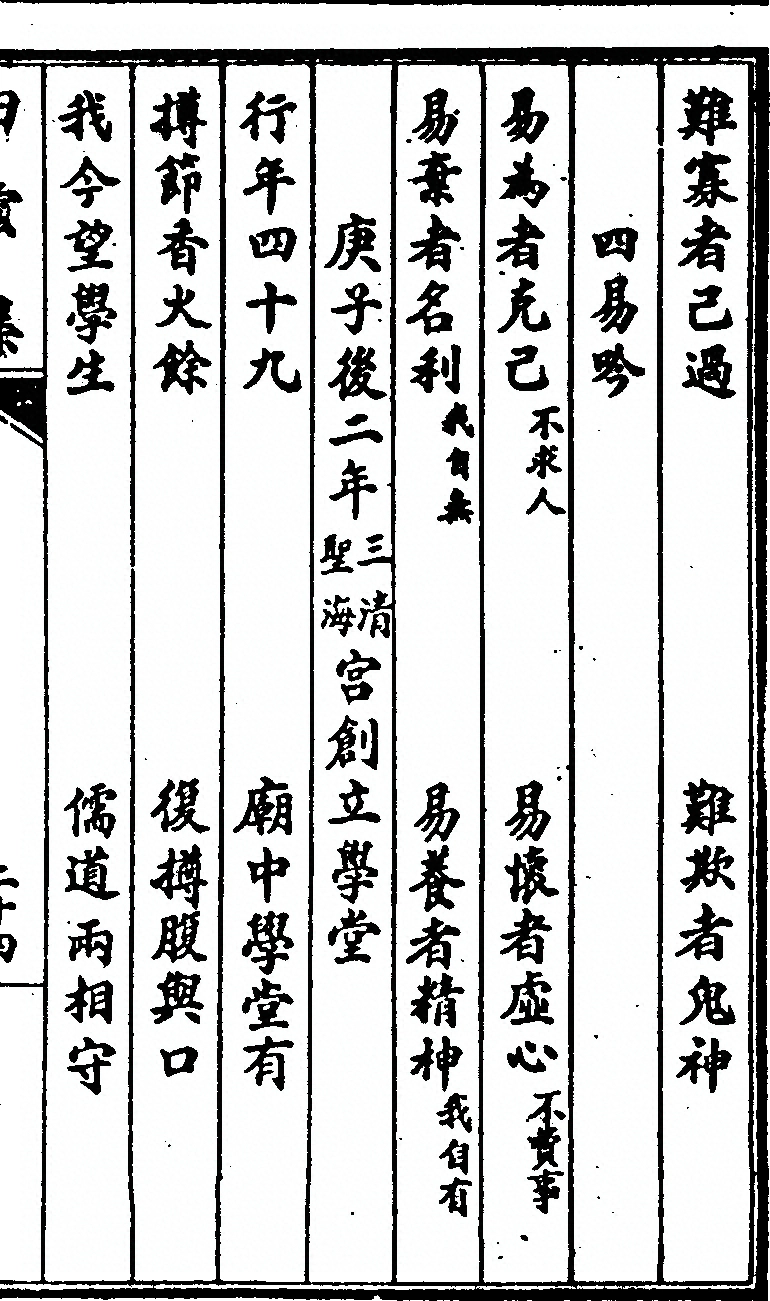 難寡者己過　難欺者鬼神
四易吟
易為者克己不求人　易懷者虛心不費事
易棄者名利我自無　易養者精神我自有
庚子後二年三清聖海宮創立學堂
行年四十九　廟中學堂有
撙節香火餘　復撙腹與口
我今望學生　儒道兩相守
二十四